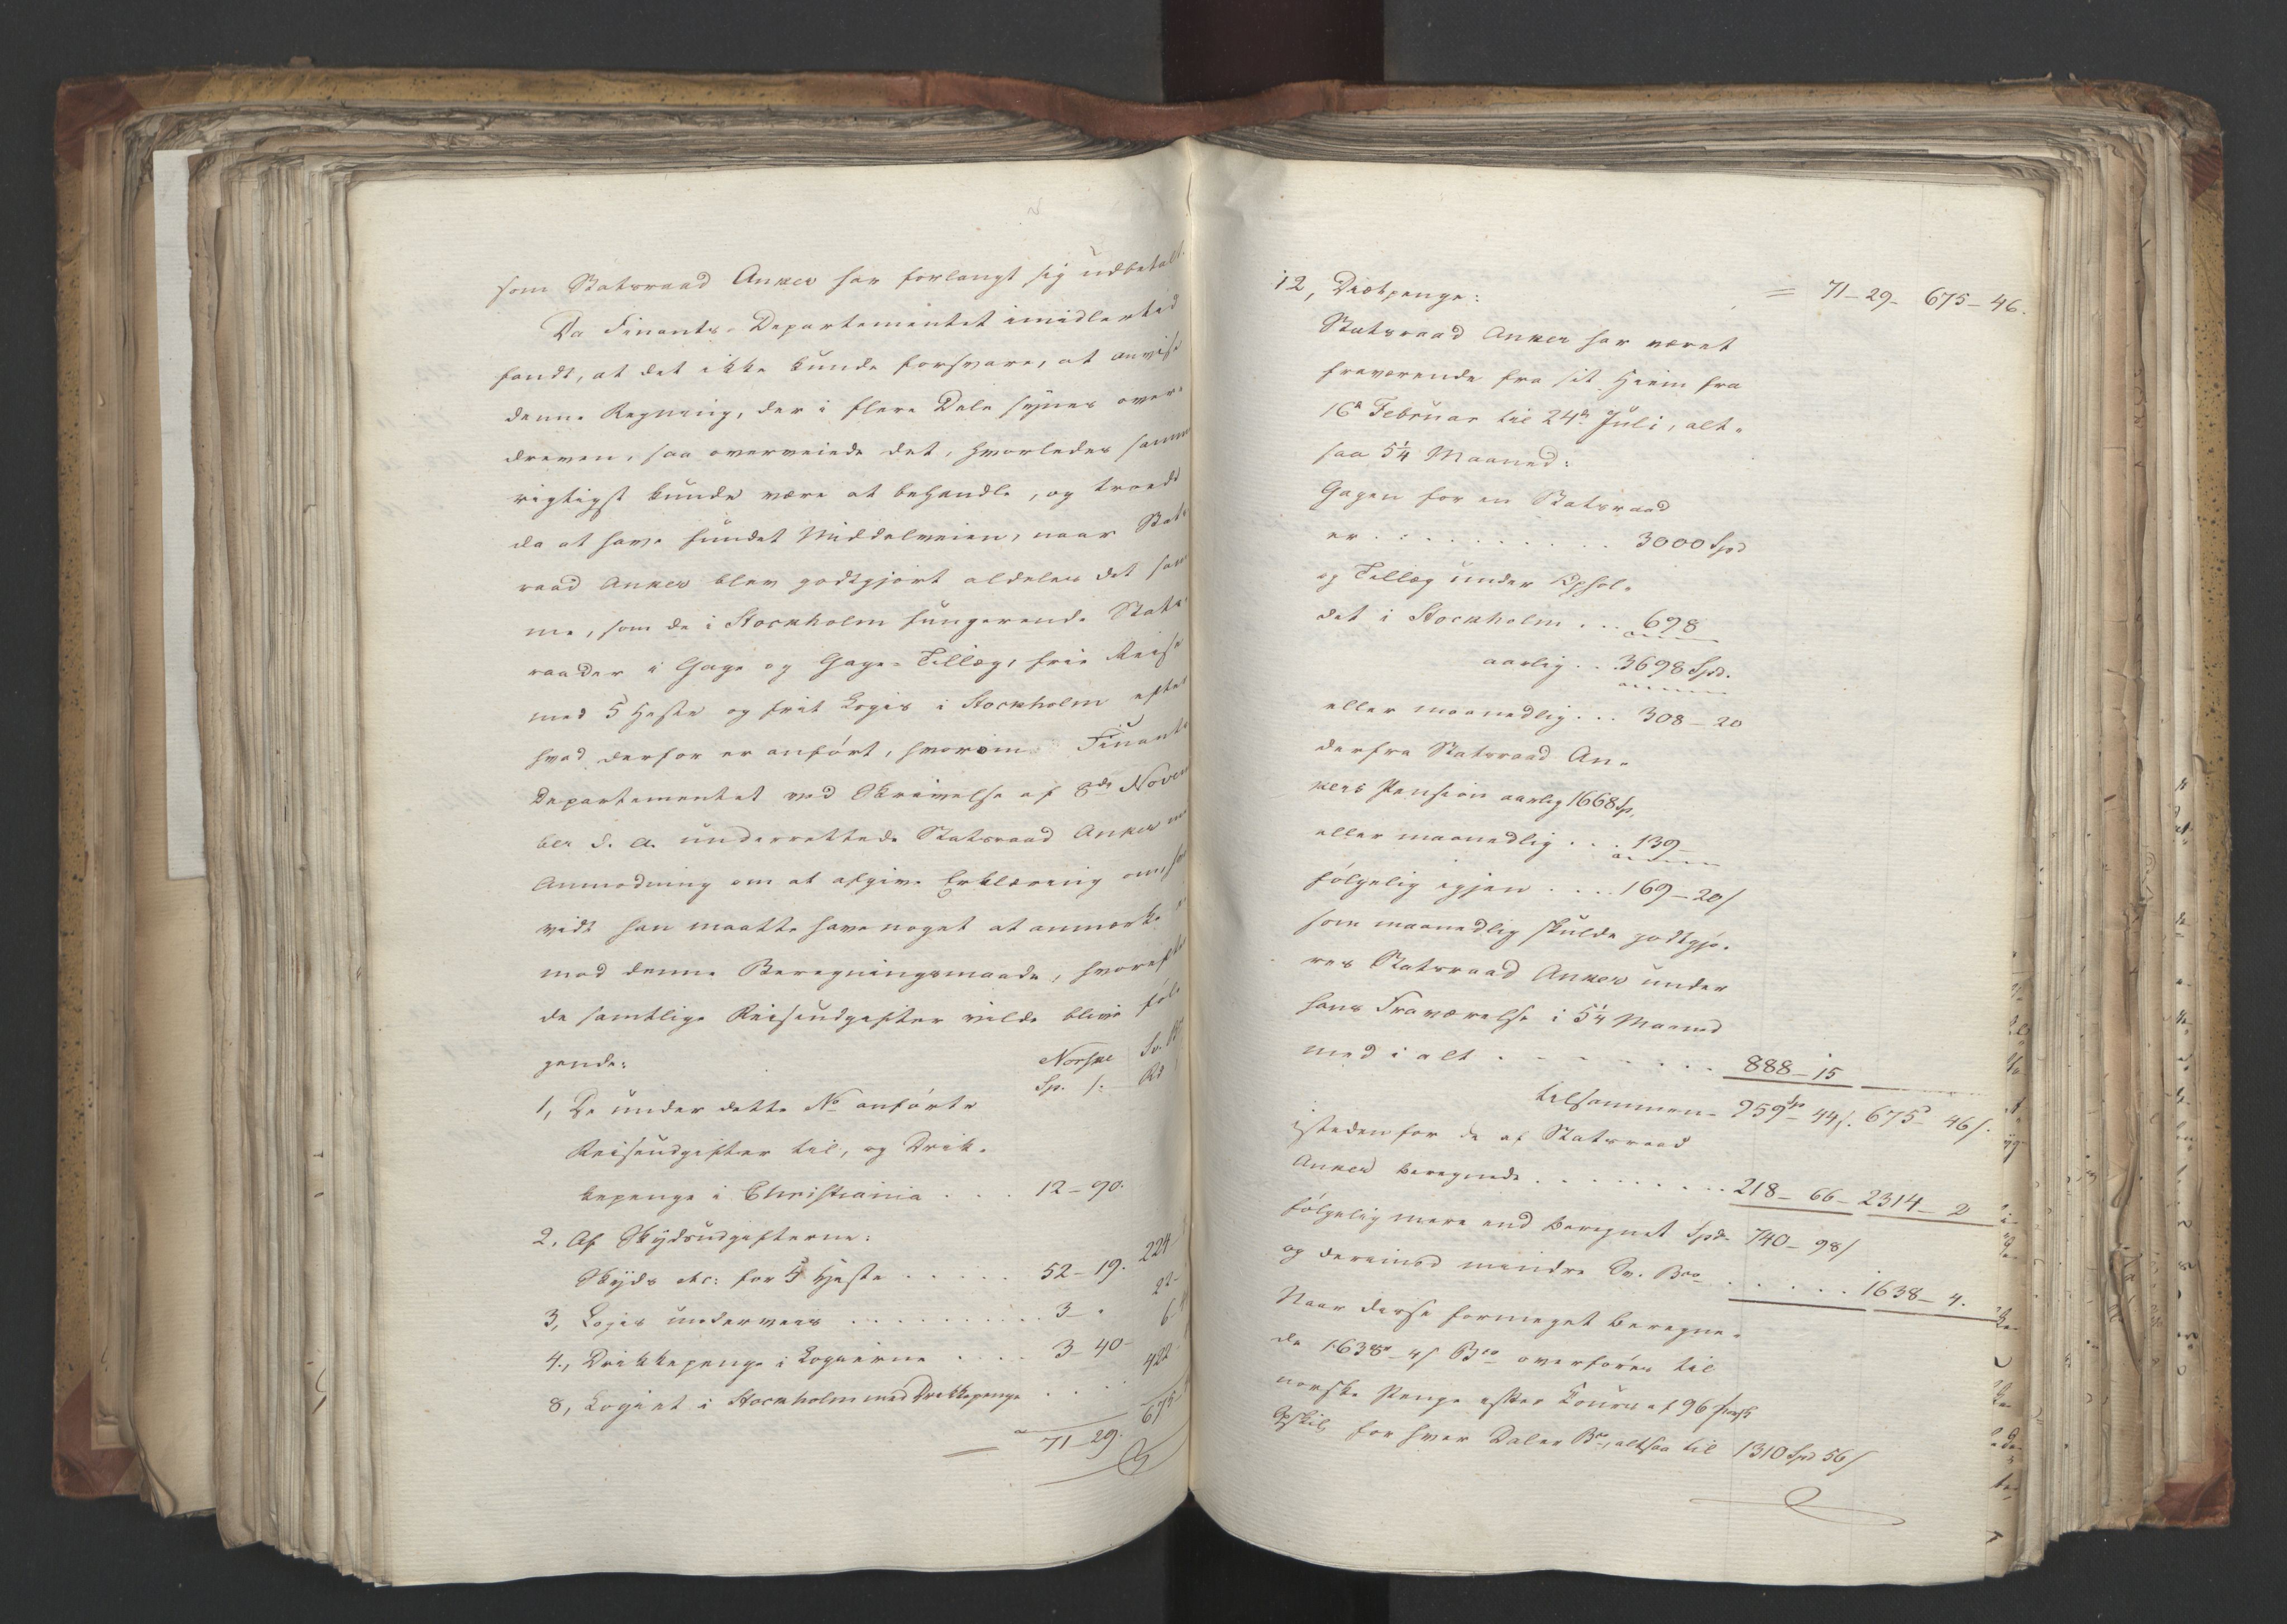 som Statsraad Anker har forlangt sig udbetalt.
Da Finants-Departementet imidlertid
fandt, at det ikke kunde forsvare, at anvise
denne Regning, der i flere Dele synes over-
dreven, saa overveiede det, hvorledes samme
rigtigst kunde være at behandle, og troede
da at have fundet Middelveien, naar Stats
raad Anker blev godtgjort aldeles det sam
me, som de i Stockholm fungerende Stats-
raader i Gage og Gage-Tillæg, frie Reise
med 5 Heste og frit Logis i Stockholm efter
hvad derfor er anført, hvorom Finants
Departementet ved Skrivelse af 8de Novem
ber d. A. underrettede Statsraad Anker med
Anmodning om at afgive Erklæring om, hvor
vidt han maatte have noget at anmærke
mod denne Beregningsmaade, hvorefter
de samtlige Reiseudgifter vilde blive føl-
gende:
Norske Sv.
Sp. s: Rd
1, De under dette No anførte
Reiseudgifter til, og Drik-
kepenge i Christiania . . . 12-90.
2. Af Skydsudgifterne:
Skyds etc: for 5 Heste . . . . . 52-19. 224
3, Logis underveis . . . . . . . . . 3- " 22-
4, Drikkepenge i Logierne . . . . 3-40- 6
8, Logiet i Stockholm med Drikkepenge . . . . 422
= 71-29. 675-
12, Diætpenge: = 71-29- 675-46.
Statsraad Anker har været
fraværende fra sit Hjem fra
16de Februar til 24de Juli, alt-
saa 5¼ Maaned:
Gagen for en Statsraad
er . . . . . . . . . . 3000 Spd
og Tillæg under Ophol-
det i Stockholm . . . 698
aarlig . . 3698 Spd.
eller maanedlig . . . 308-20
derfra Statsraad An-
kers Pension aarlig 1668 Sp.
eller maanedlig . . . 139-
følgelig igjen . . . . 169-20/
som maanedlig skulde godtgjø-
res Statsraad Anker under
hans Fraværelse i 5¼ Maaned
med i alt . . . . . . . . 888-15
tilsammen- 959Sp- 44/. 675d- 46/.
istedenfor de af Statsraad
Anker beregnede . . . . . . . . . 218- 66- 2314- 2
følgelig mere end beregnet Spd- 740- 98/
og derimod mindre Sv. Bco . . . . . 1638- 4.
Naar disse formeget beregne-
de 1638d- 4/ Bco overføres til
norske Penge efter Cours af 96
for hver Daler Bco, altsaa til 1310 Spd 56/